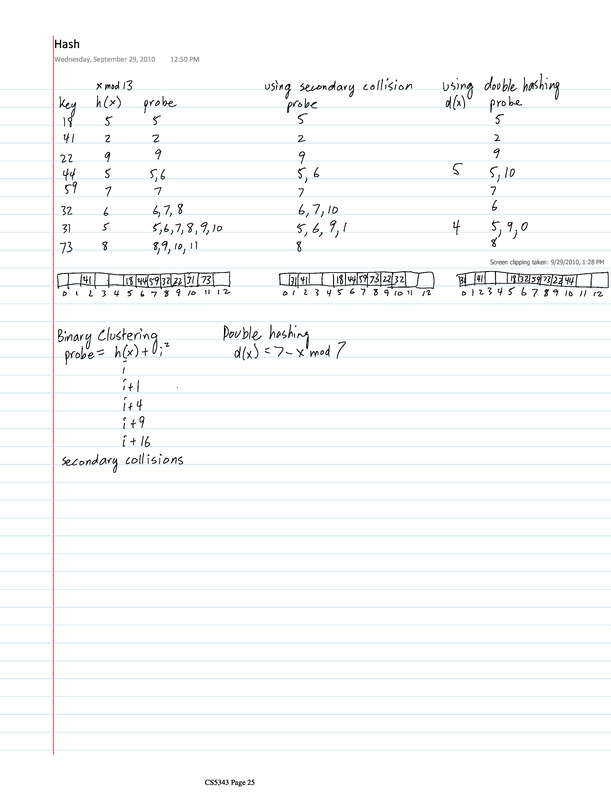 Hash
Wednesday, September 29, 2010 12:50 PM
x mod 13 using secondary collision using double hashing
Key h(x) probe probe d(x) probe
18 5 5 5 5
41 2 2 2 2
22 9 9 9 9
44 5 5,6 5, 6 5 5, 10
59 7 7 7 7
32 6 6, 7, 8 6, 7, 10 6
31 5 5,6,7,8,9,10 5, 6, 9, 1 4 5, 9, 0
73 8 8,9,10,11 8 8
Screen clipping taken: 9/29/2010, 1:28 PM
41 18 44 59 32 22 31 73 31 41 18 44 59 73 22 32 31 41 18 32 59 73 22 44
0 1 2 3 4 5 6 7 8 9 10 11 12 0 1 2 3 4 5 6 7 8 9 10 11 12 0 1 2 3 4 5 6 7 8 9 10 11 12
Binary Clustering Double hashing
probe = h(x) + i² d(x) = 7 - x mod 7
i
i+1
i+4
i+9
i+16
secondary collisions
CS5343 Page 25